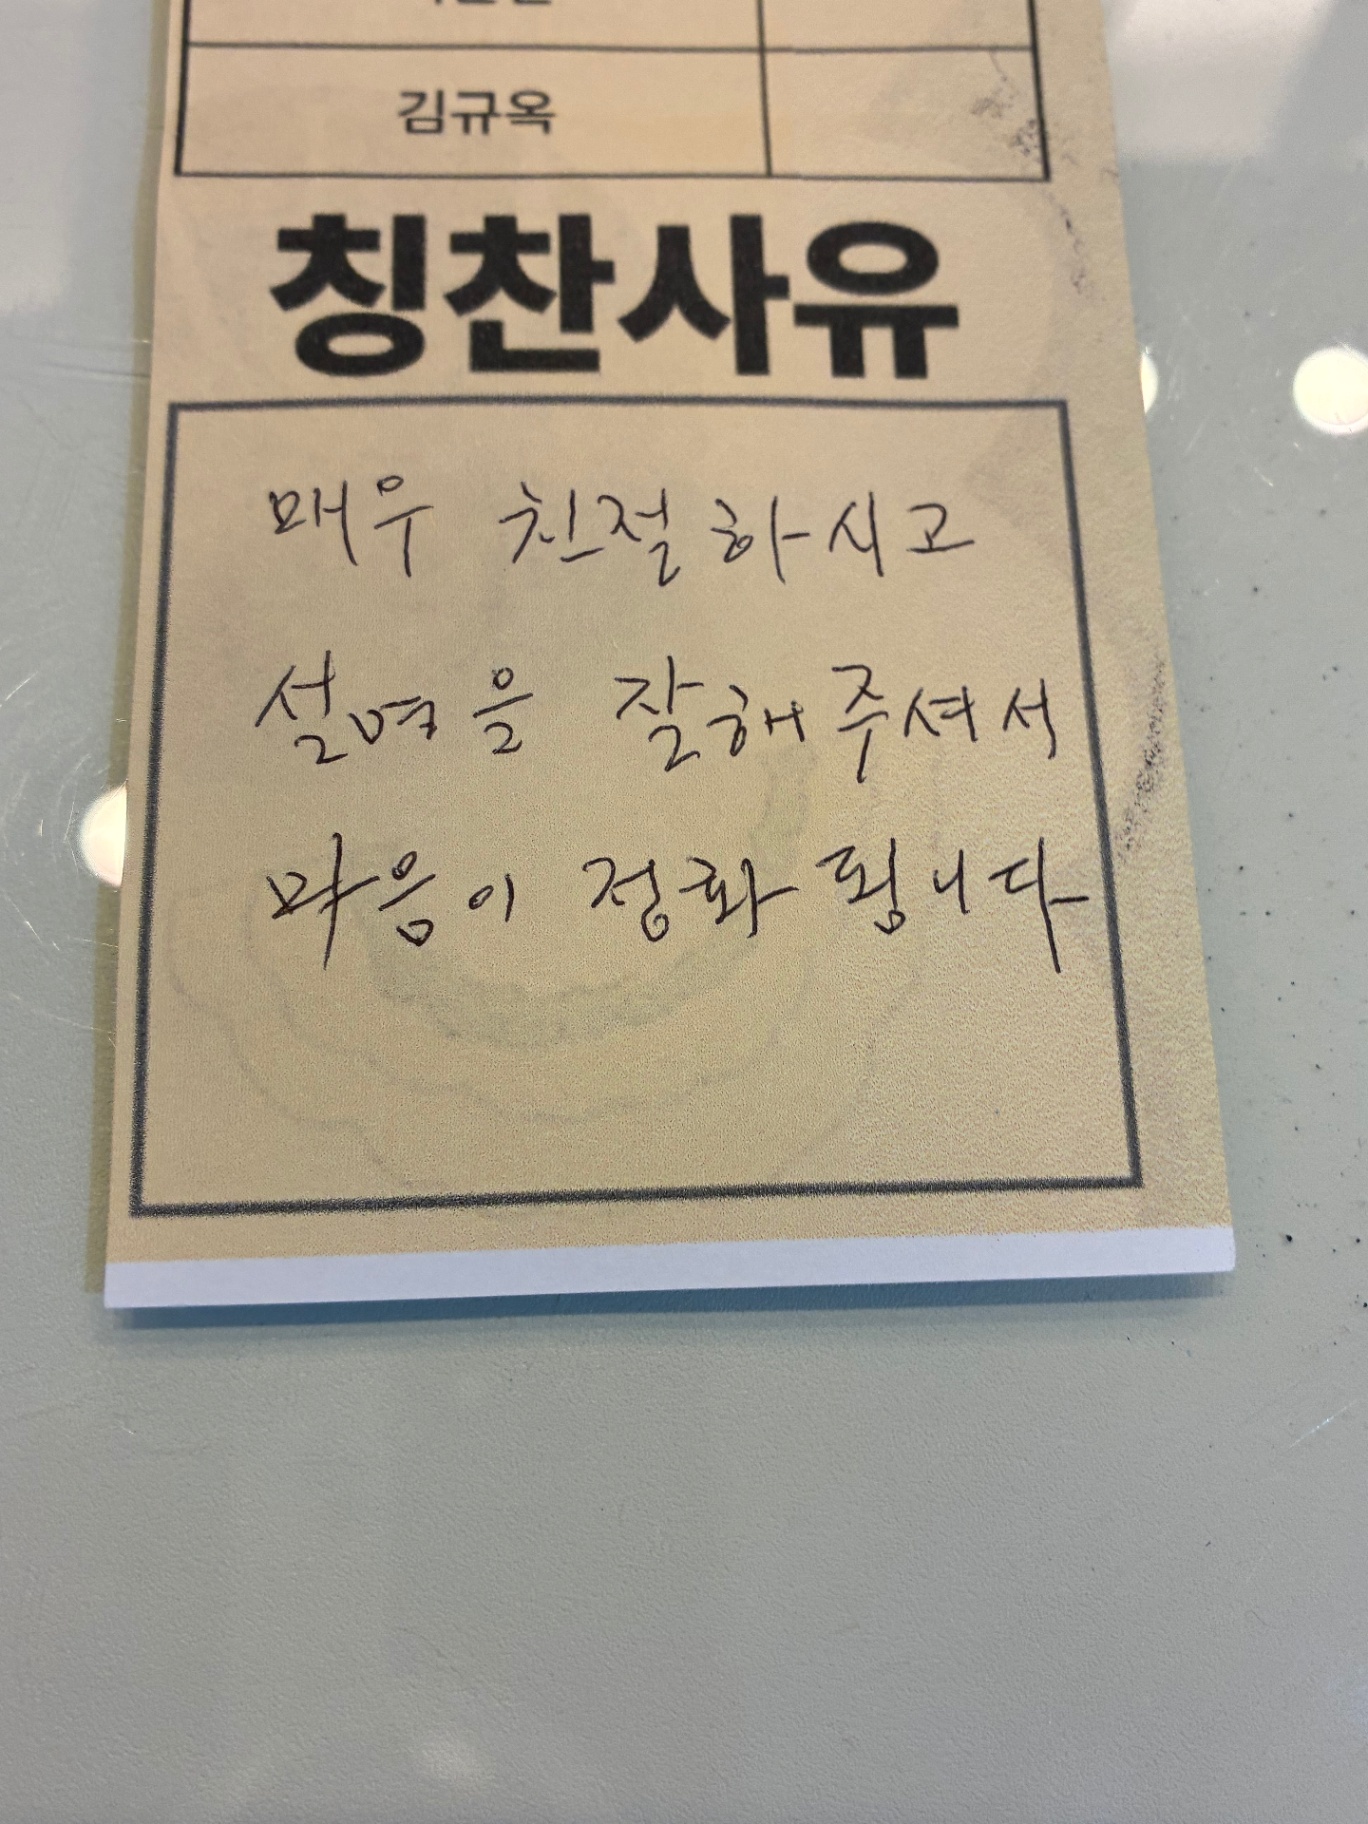 김규옥
칭찬사유
매우 친절하시고
설며을 잘해주셔서
마음이 정화됩니다